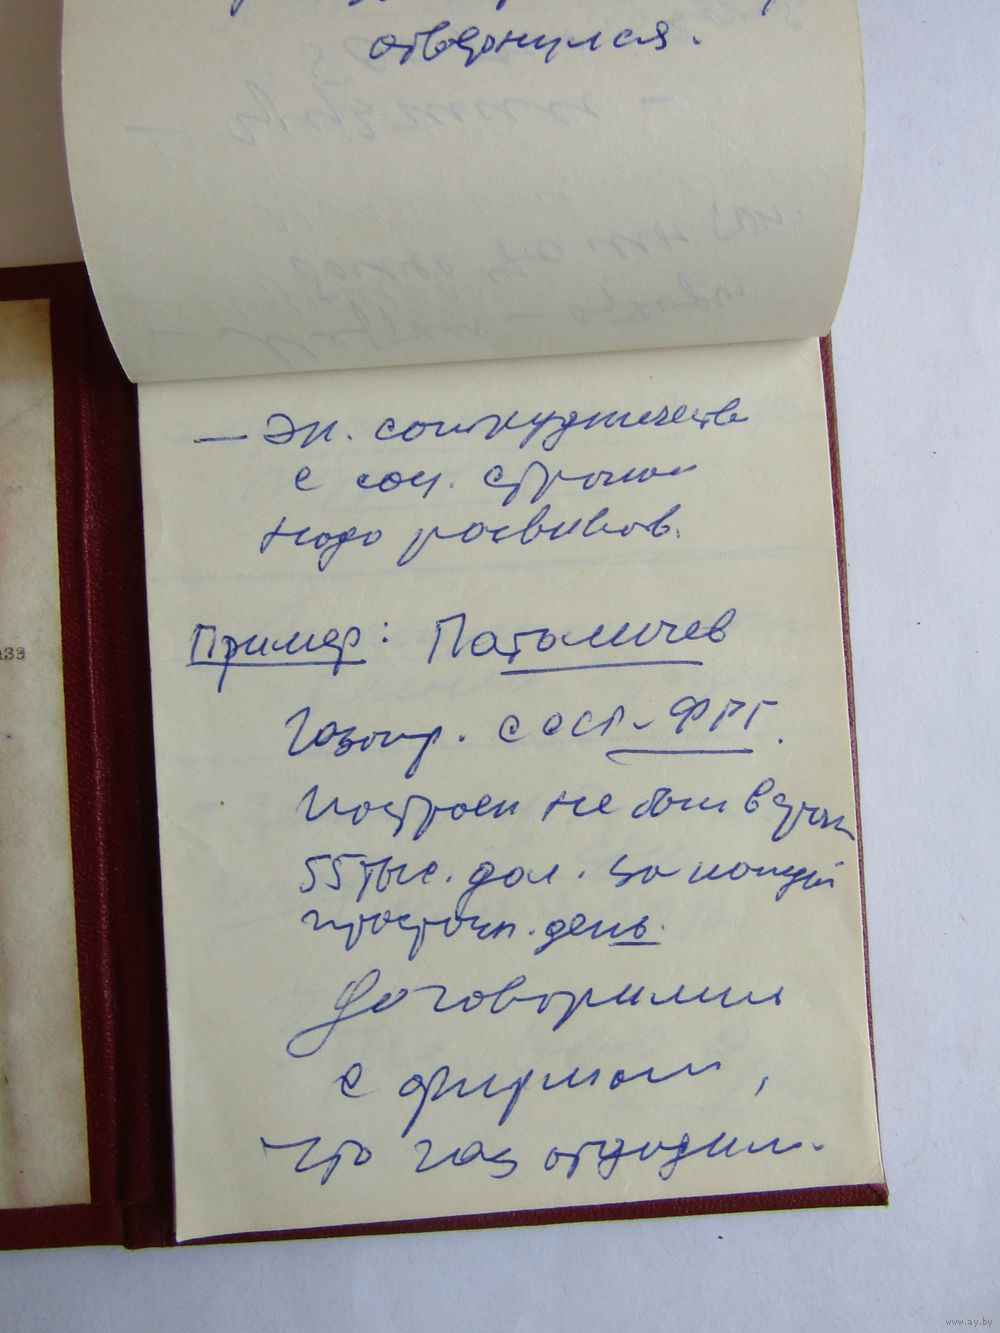 отвернулся.
— Эк. сотрудничеств
с соц. странам
надо развиват.
Пример: Патоличев
Газопр. СССР – ФРГ.
Построен не был в срок
55 тыс. дол. за каждый
просрочен. день.
Договорились
с фирмами,
что газ отдадим.
азз
www.ay.by